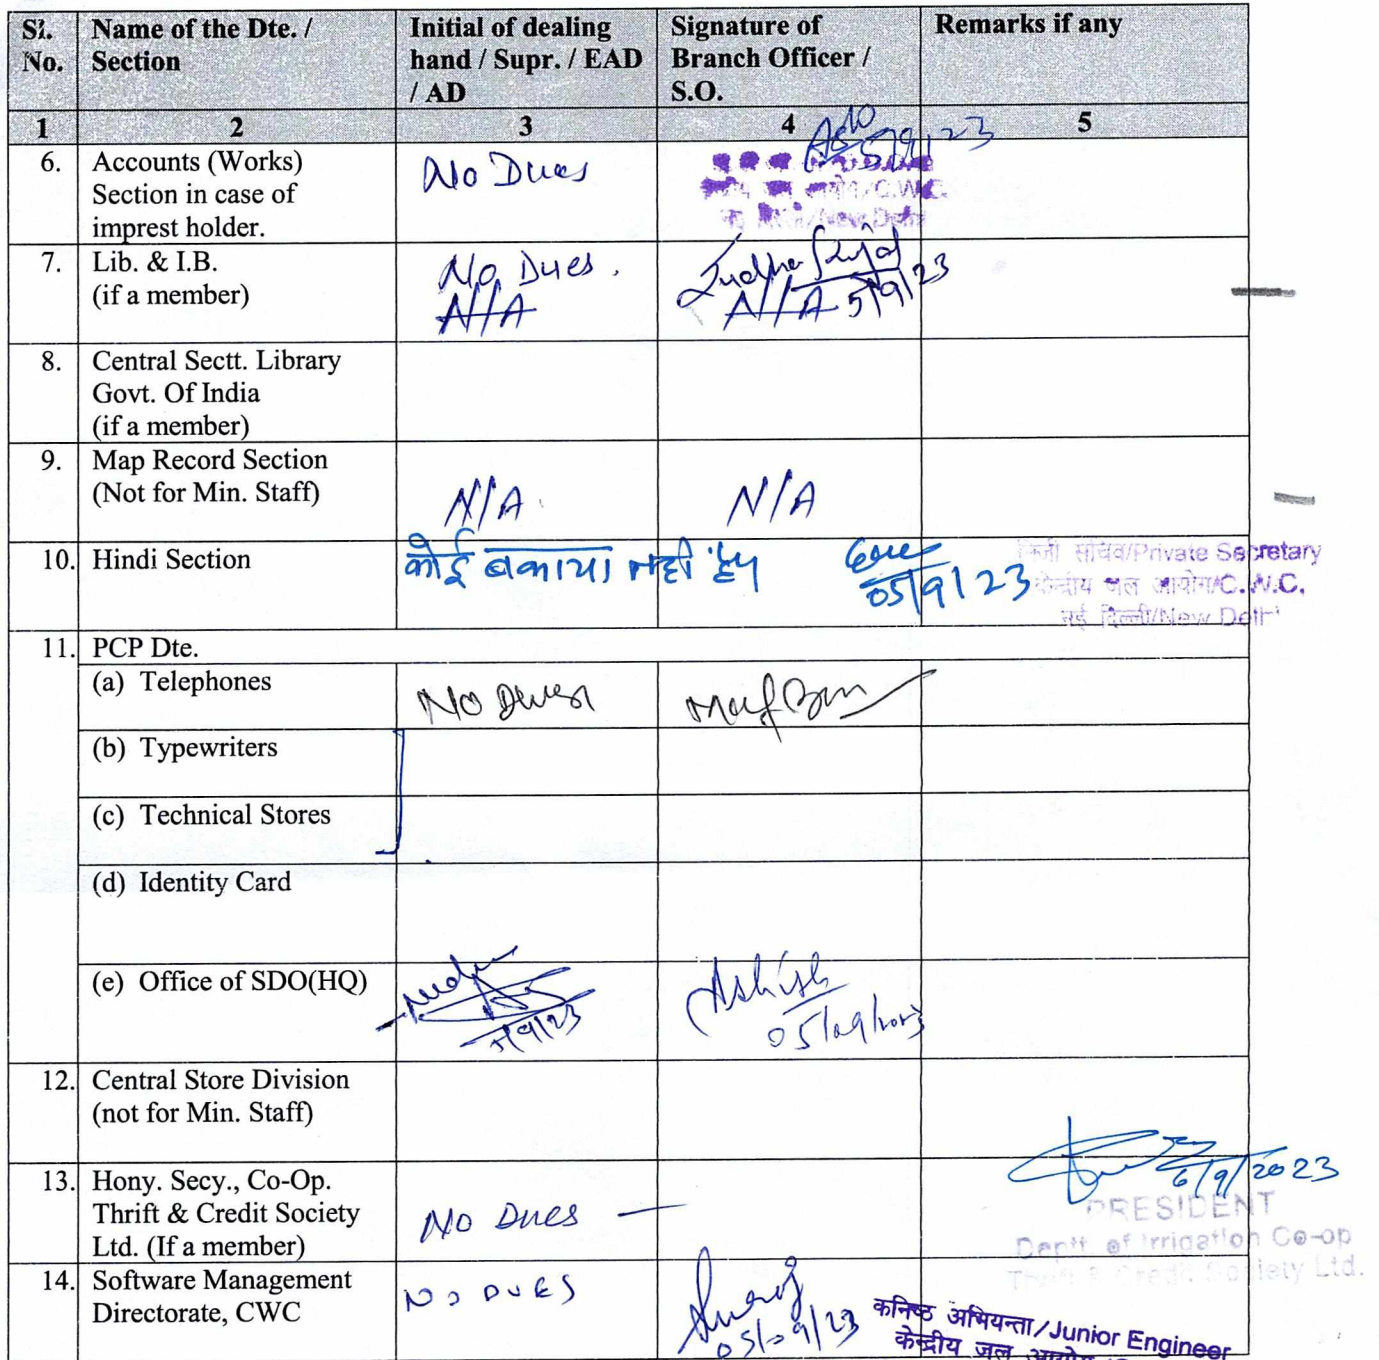 Sl. No.
Name of the Dte. / Section
Initial of dealing hand / Supr. / EAD / AD
Signature of Branch Officer / S.O.
Remarks if any
1 2 3 4 5
6. Accounts (Works)
Section in case of
imprest holder.
No Dues
5/9/23
/C.W.C.
/New Delhi
7. Lib. & I.B.
(if a member)
No Dues.
N/A
N/A 5/9/23
8. Central Sectt. Library
Govt. Of India
(if a member)
9. Map Record Section
(Not for Min. Staff)
N/A
N/A
10. Hindi Section
कोई बकाया नहीं है
05/9/23
निजी सचिव/Private Secretary
केन्द्रीय जल आयोग/C.W.C.
नई दिल्ली/New Delhi
11. PCP Dte.
(a) Telephones
No Dues
(b) Typewriters
(c) Technical Stores
(d) Identity Card
(e) Office of SDO(HQ)
5/9/23
Ashish
05/09/2023
12. Central Store Division
(not for Min. Staff)
13. Hony. Secy., Co-Op.
Thrift & Credit Society
Ltd. (If a member)
No Dues —
6/9/2023
PRESIDENT
Deptt. of Irrigation Co-op
Thrift & Credit Society Ltd.
14. Software Management
Directorate, CWC
NO DUES
05/09/23
कनिष्ठ अभियन्ता/Junior Engineer
केन्द्रीय जल आयोग